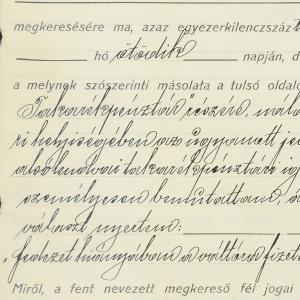 megkeresésére ma, azaz egyezerkilenczszáz
hó ötödik napján, d
a melynek szószerinti másolata a tulső oldalo
Takarékpénztár" részére, mala
ri helyiségében az ugyanott je
alsólendvai takarékpénztári ig
személyesen bemutattam, a
választ nyertem:
„fedezet hiányában a váltóra fizet
Miről, a fent nevezett megkereső fél jogai